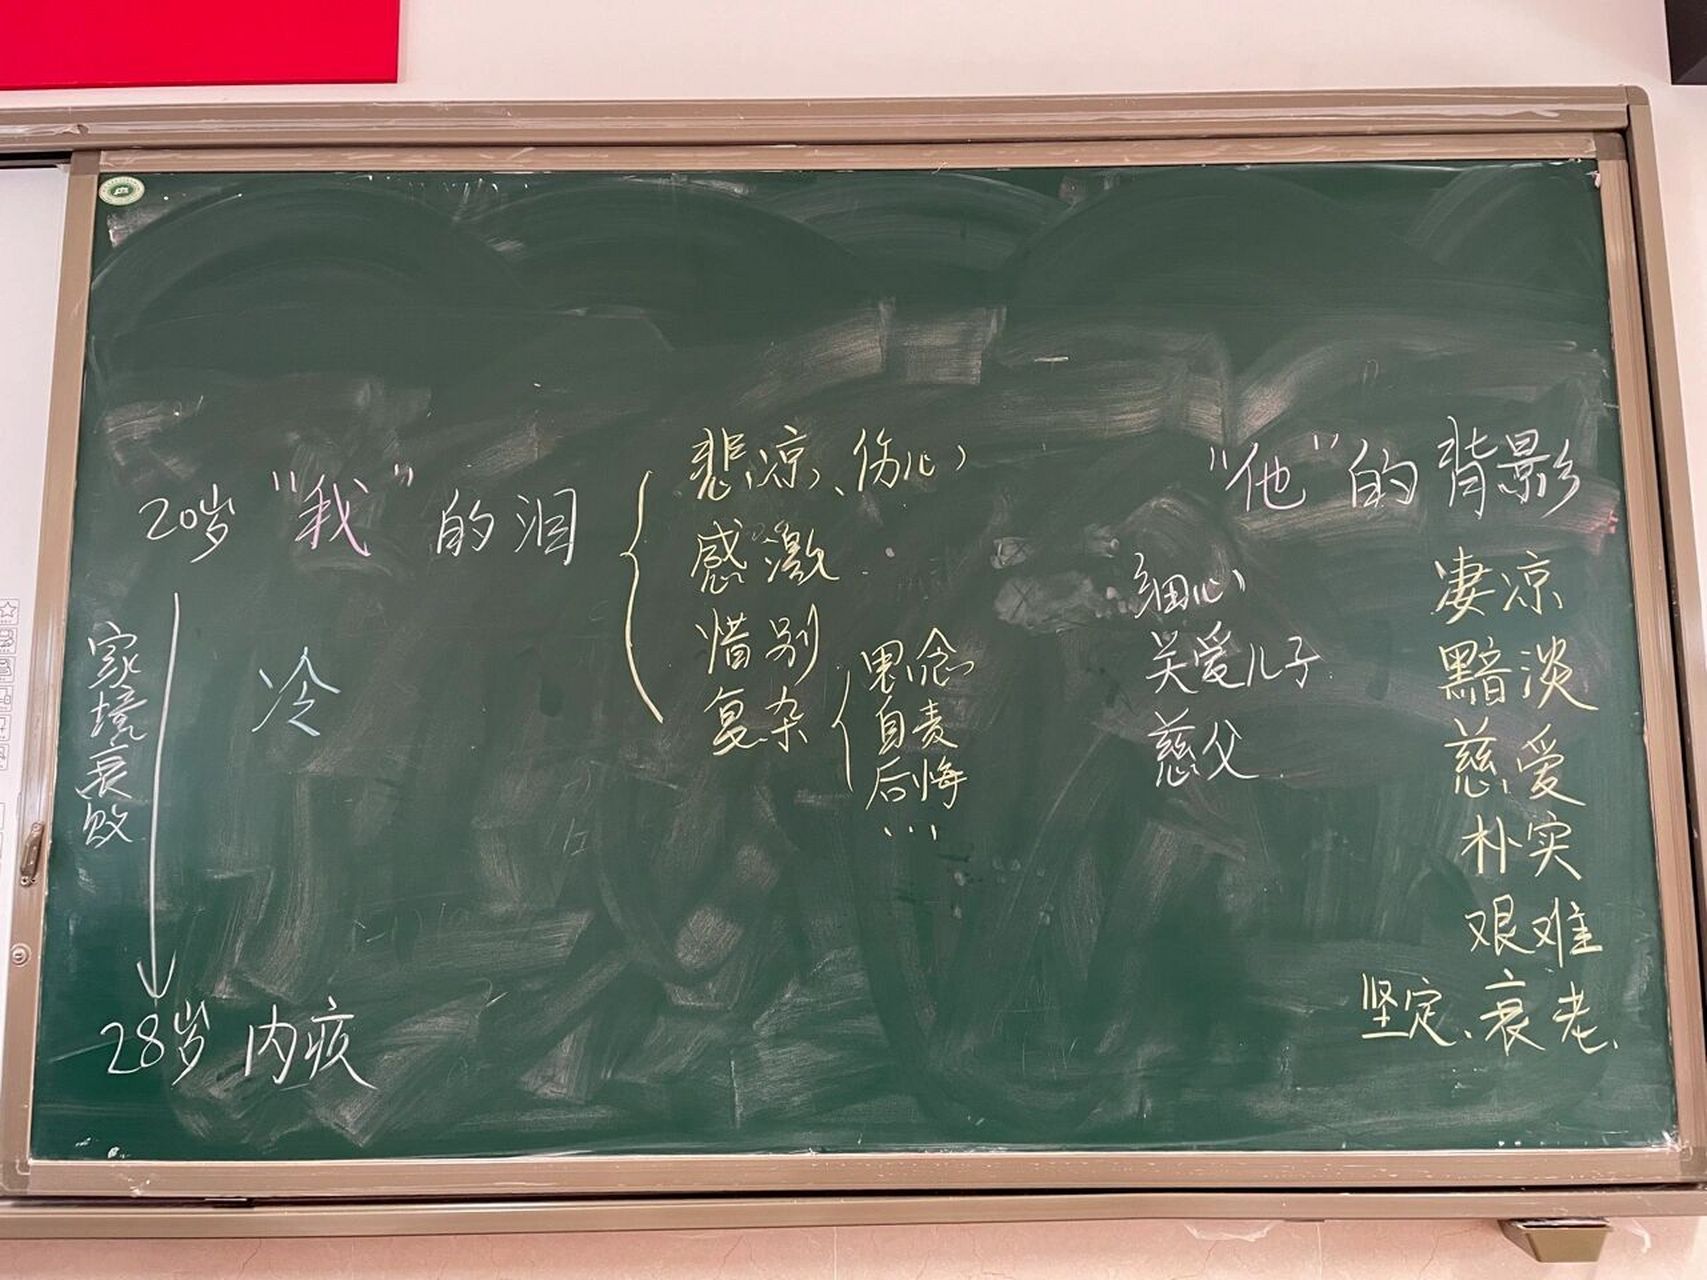 20岁 "我" 的泪
家境衰败
冷
28岁 内疚
悲凉、伤心
感激
惜别
复杂
思念
自责
后悔
...
"他"的背影
细心
关爱儿子
慈父
凄凉
黯淡
慈爱
朴实
艰难
坚定、衰老、